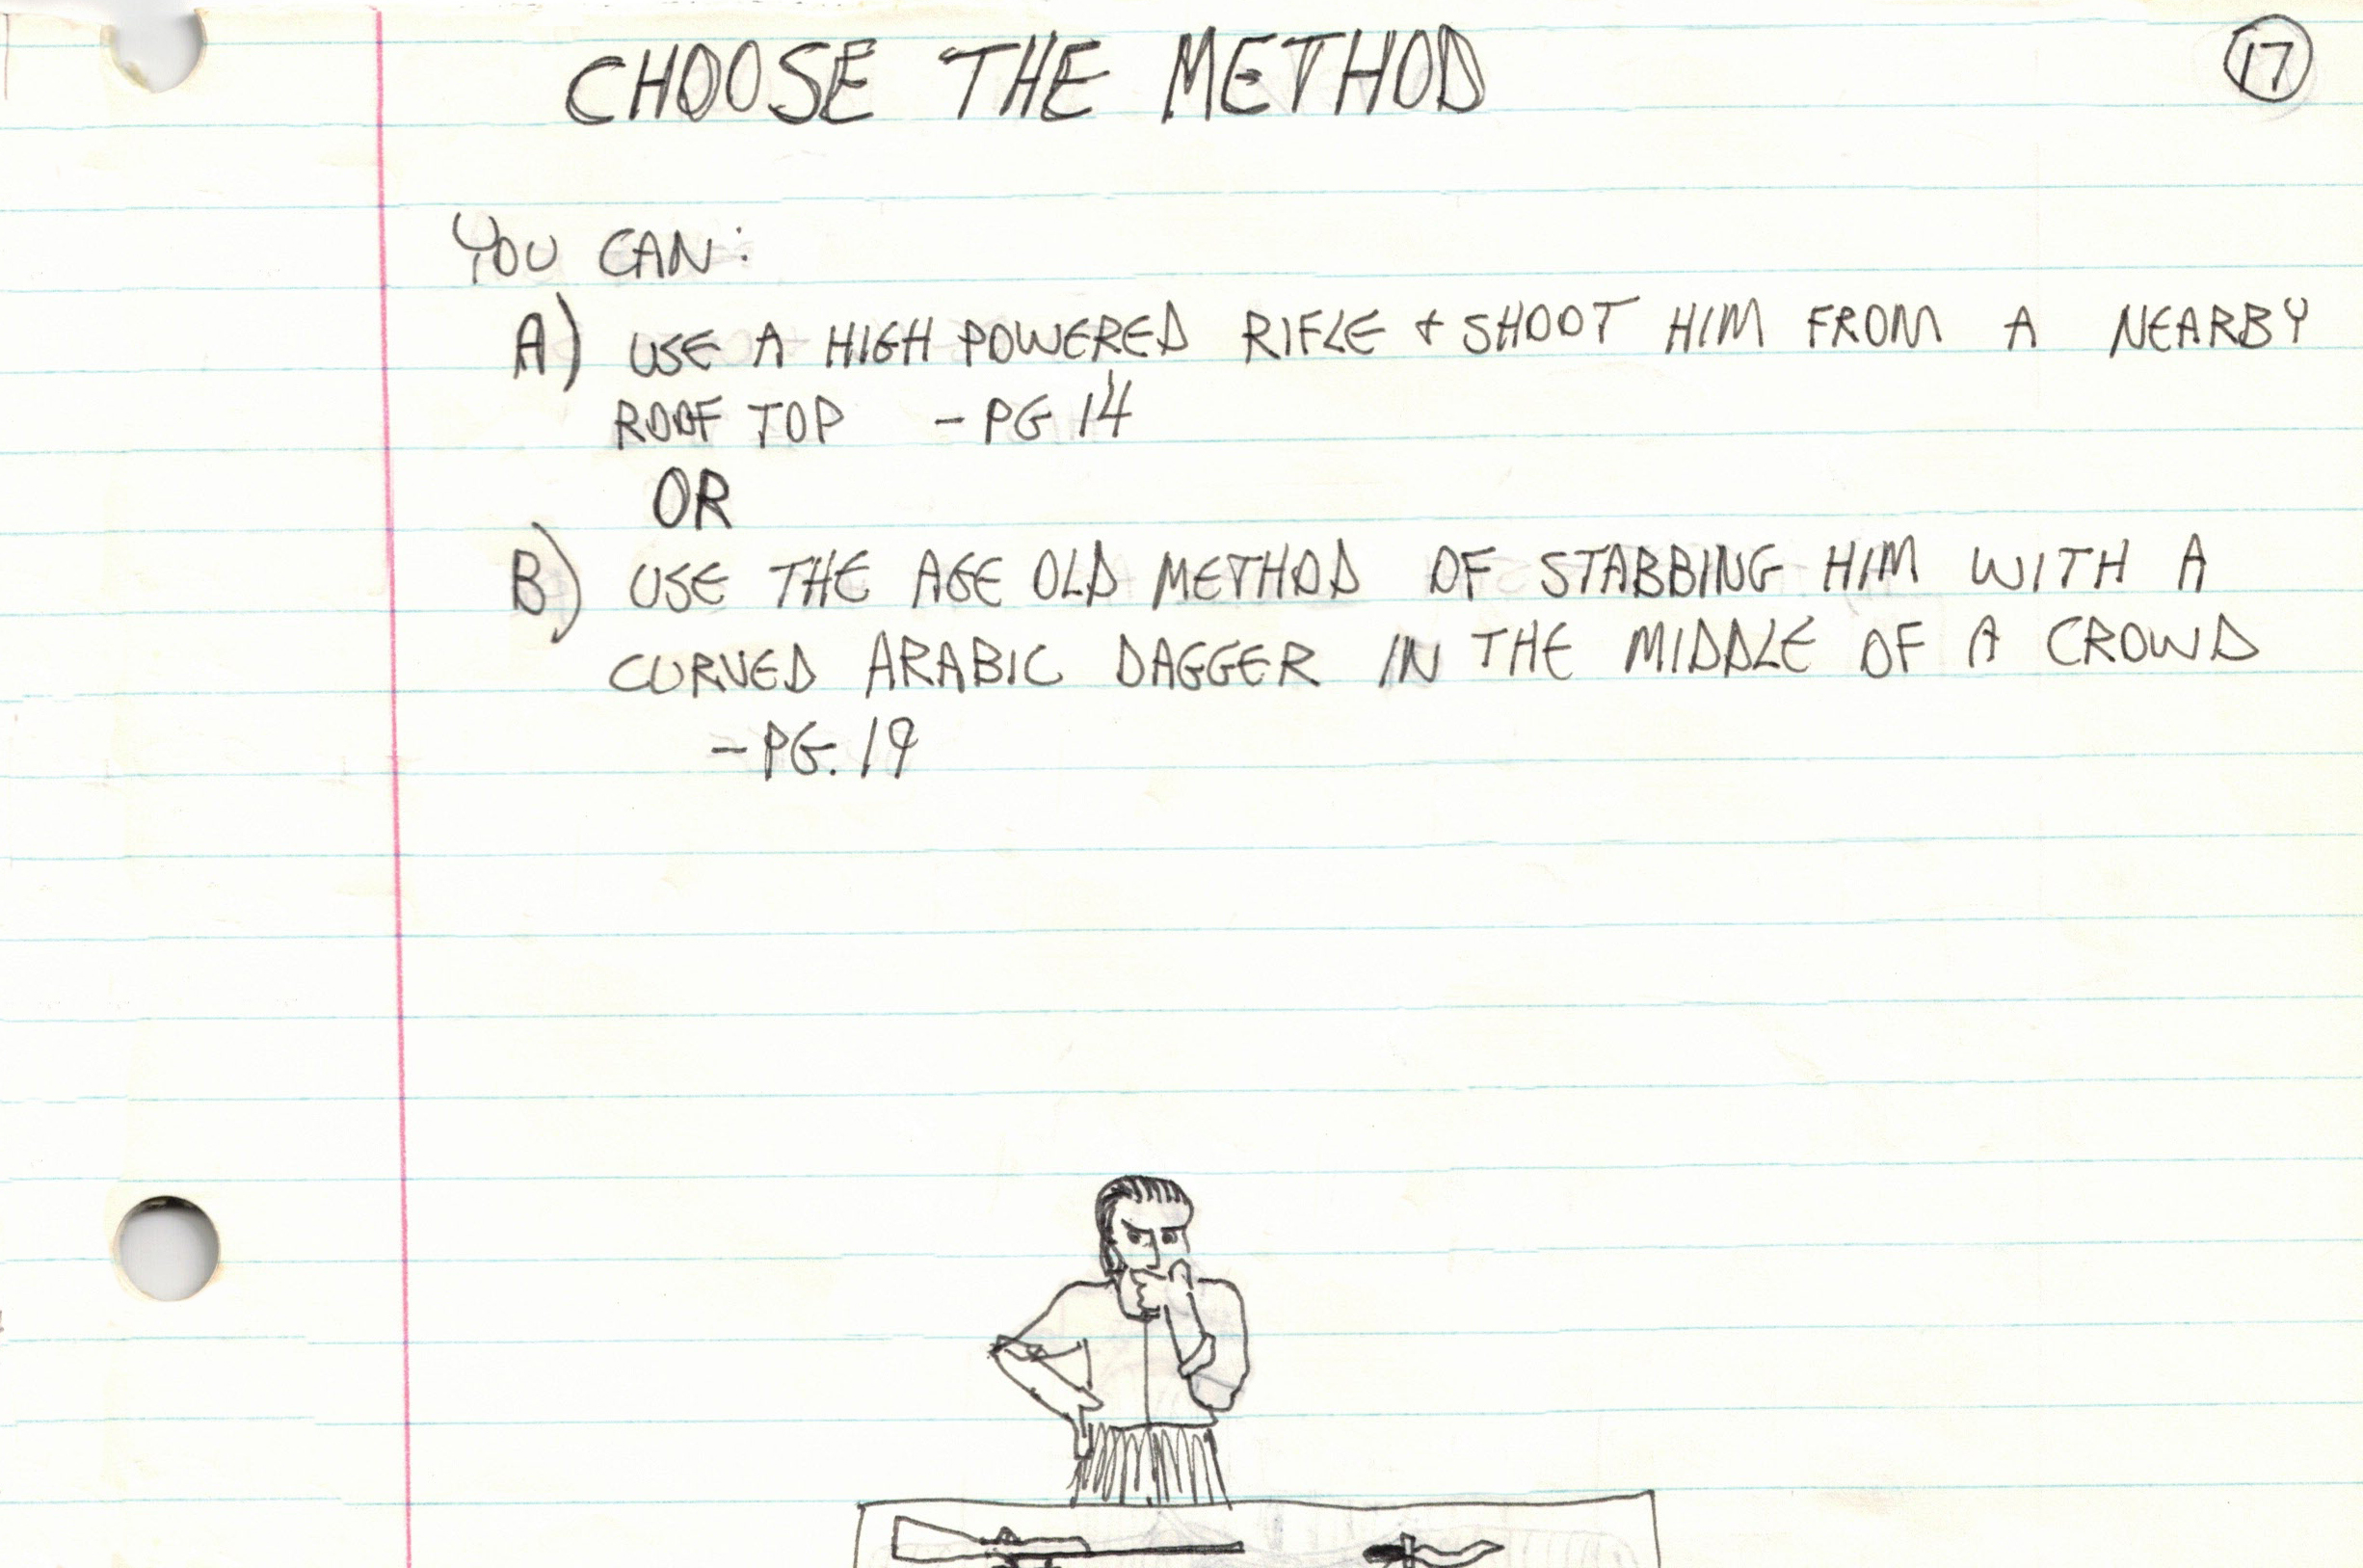 CHOOSE THE METHOD
17
YOU CAN:
A) USE A HIGH POWERED RIFLE + SHOOT HIM FROM A NEARBY
ROOF TOP - PG 14
OR
B) USE THE AGE OLD METHOD OF STABBING HIM WITH A
CURVED ARABIC DAGGER IN THE MIDDLE OF A CROWD
- PG. 19